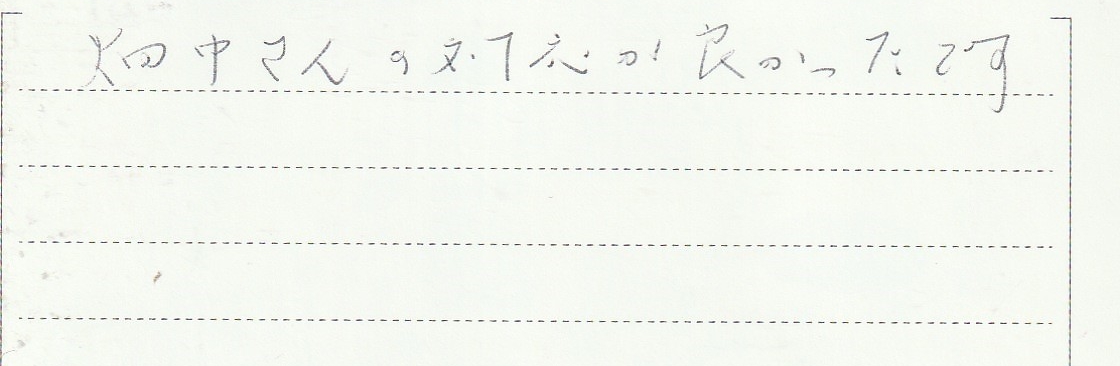 畑中さんの対応が良かったです